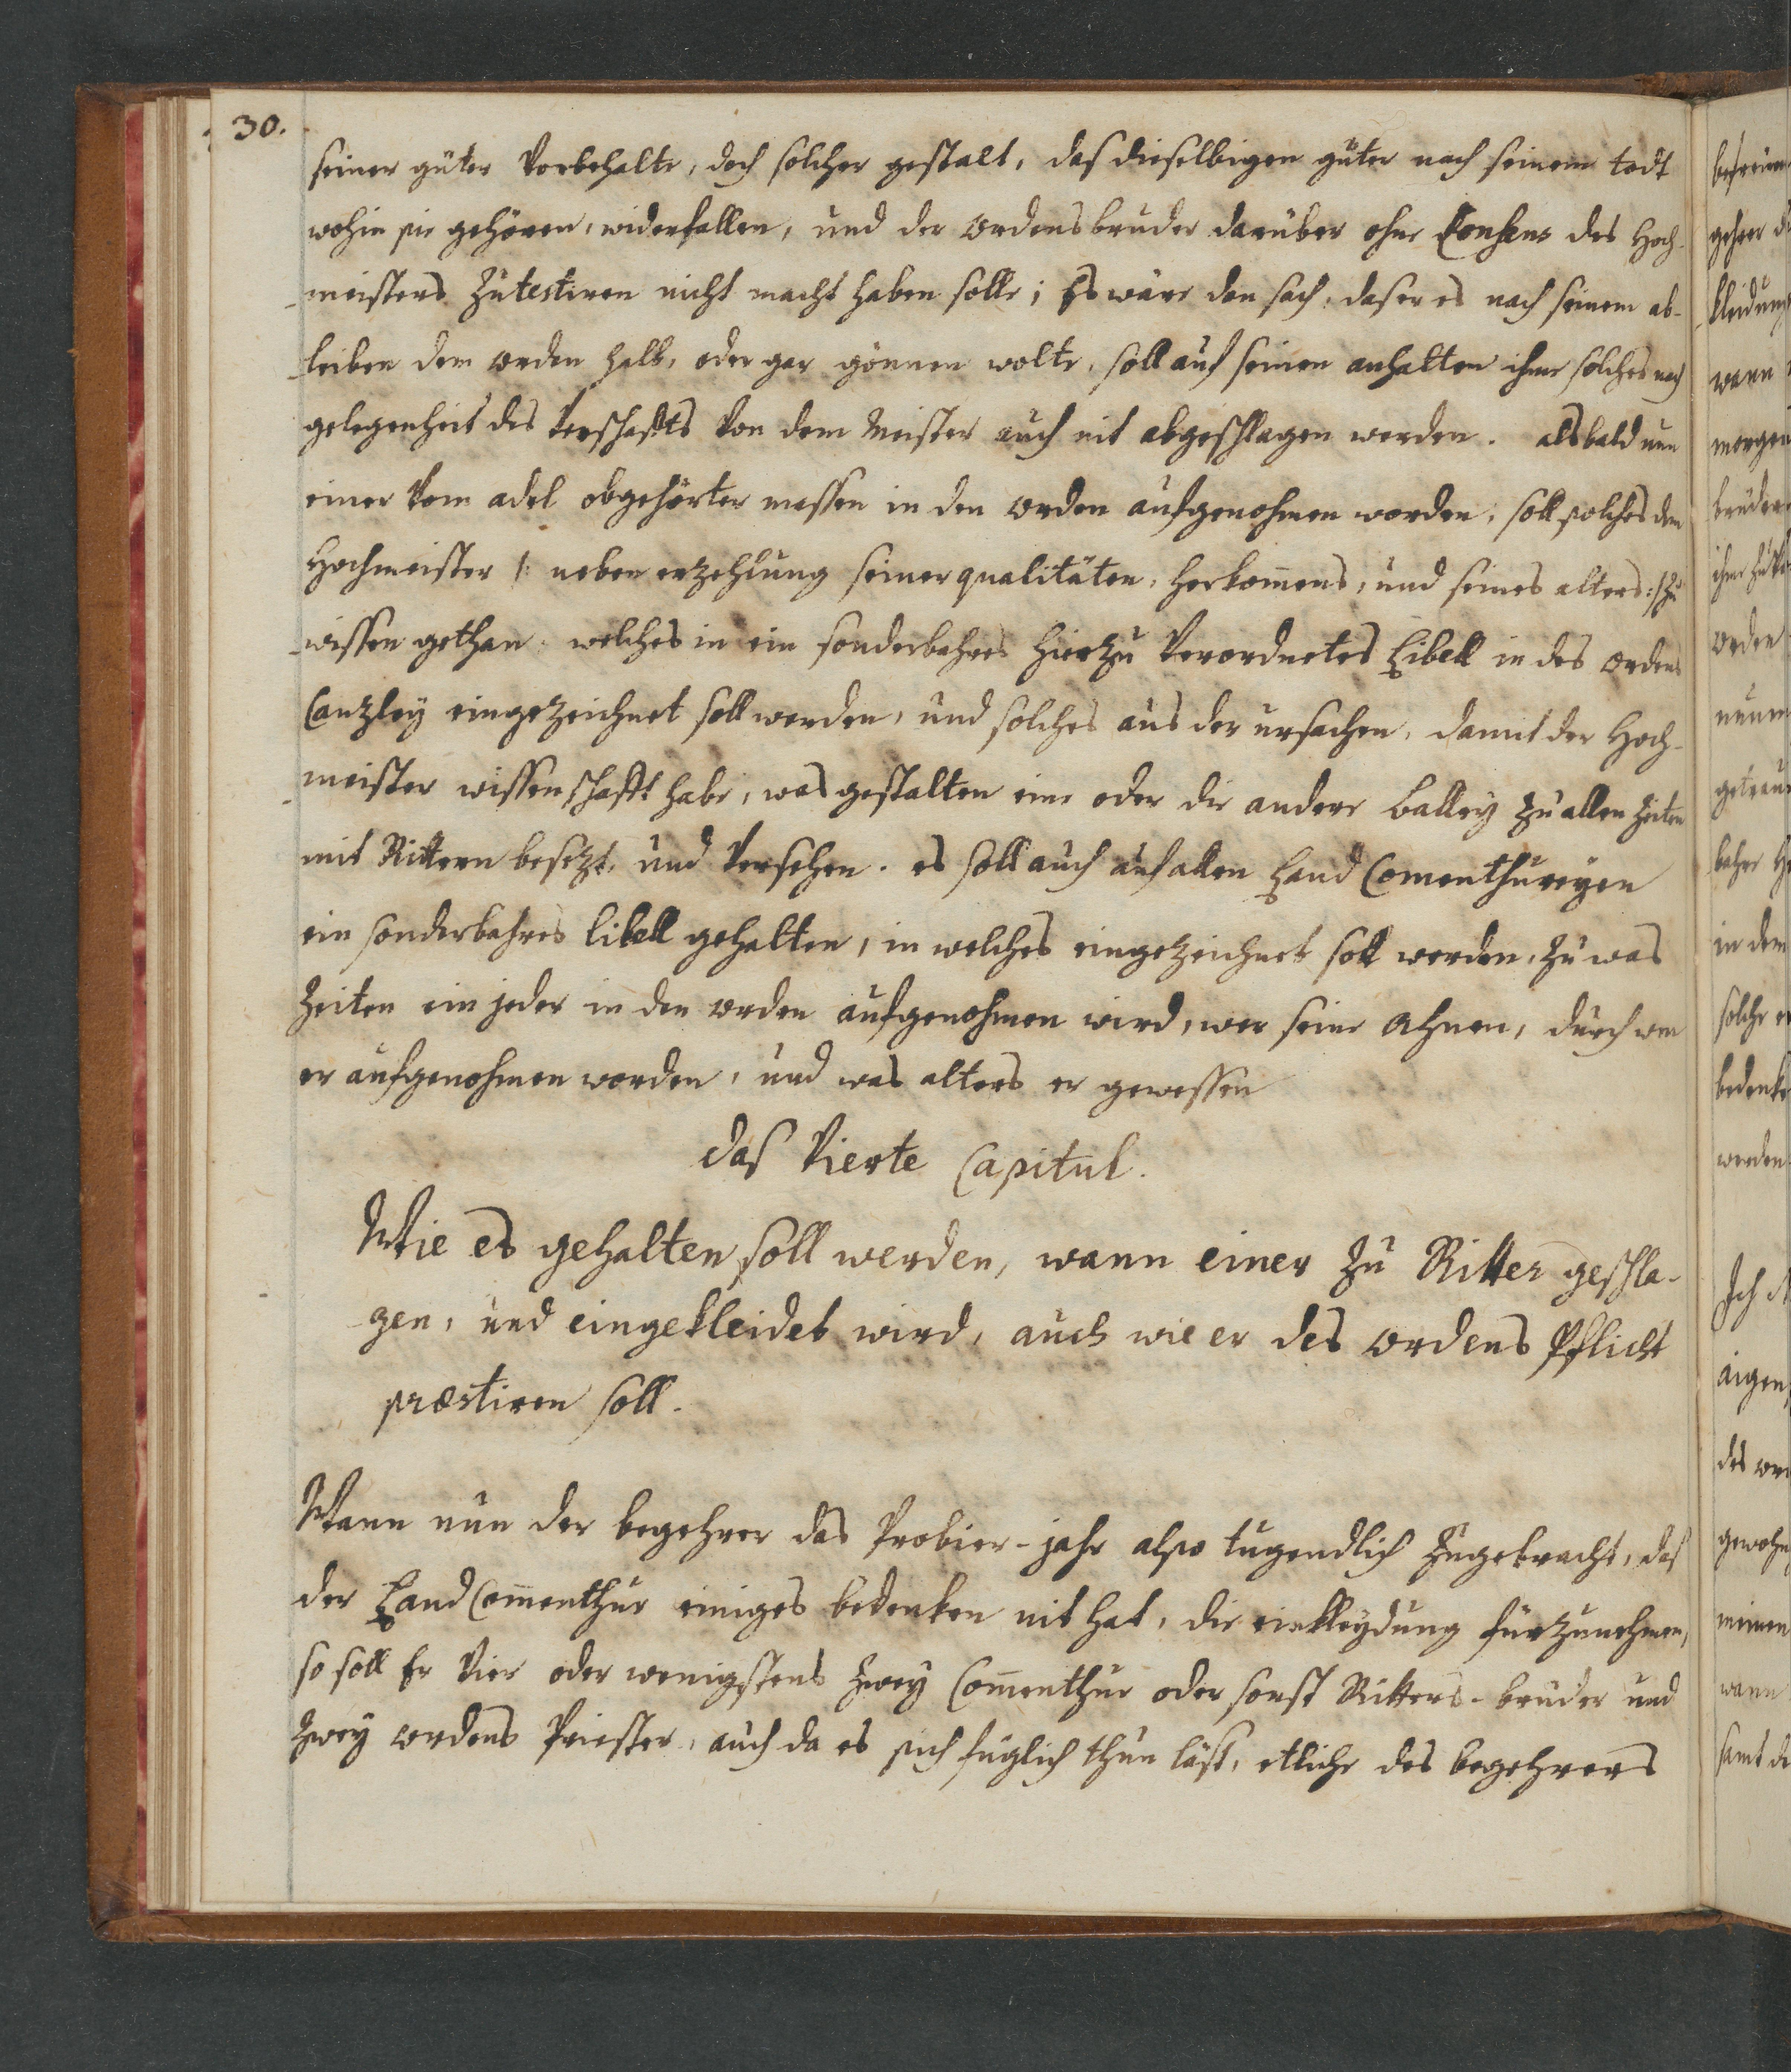 30.
seiner güter Vorbehalte, doch solcher gestalt, das dieselbigen güter nach seinem todt
wohin sie gehören, widerfallen, und der ordensbruder darüber ohne Consens des Hoch-
meisters zu testiren nicht macht haben solle; Es wäre dan sach, das er es nach seinem ab-
leiben dem orden halb, oder gar gönnen wolte, soll auf seinen anhalten ihme solches nach
gelegenheit des Verschafts Von dem Meister auch nit abgeschlagen werden. alsbald nun
einer Vom adel obgehörter massen in den orden aufgenohmen worden, soll solches dem
Hochmeister /: neben erzehlung seiner qualitäten, herkom̄ens, und seines alters :/ zu
wissen gethan, welches in ein sonderbahres hierzu Verordnetes Libell in des ordens
Canzley eingezeichnet soll werden, und solches aus der ursachen, damit der Hoch-
meister wissenschafft habe, was gestalten eine oder die andere balley zu allen zeiten
mit Rittern besezt, und Versehen. es soll auch auf allen Land Comenthureyen
ein sonderbahres libell gehalten, in welches eingezeichnet soll werden, zu was
zeiten ein jeder in den orden aufgenohmen wird, wer seine Ahnen, durch wen
er aufgenohmen worden, und was alters er gewessen
das Vierte Capitul.
Wie es gehalten soll werden, wann einer zu Ritter geschla-
gen, und eingekleidet wird, auch wie er des ordens Pflicht
præstiren soll.
Wann nun der begehrer das Probier-jahr also tugendlich zugebracht, das
der Land Com̄enthur einiges bedenken nit hat, die einkleydung fürzunehmen,
so soll Er Vier oder wenigstens zwey Com̄enthur oder sonst Ritters-bruder und
zwey ordens Priester, auch da es sich füglich thun läst, etliche des begehrers